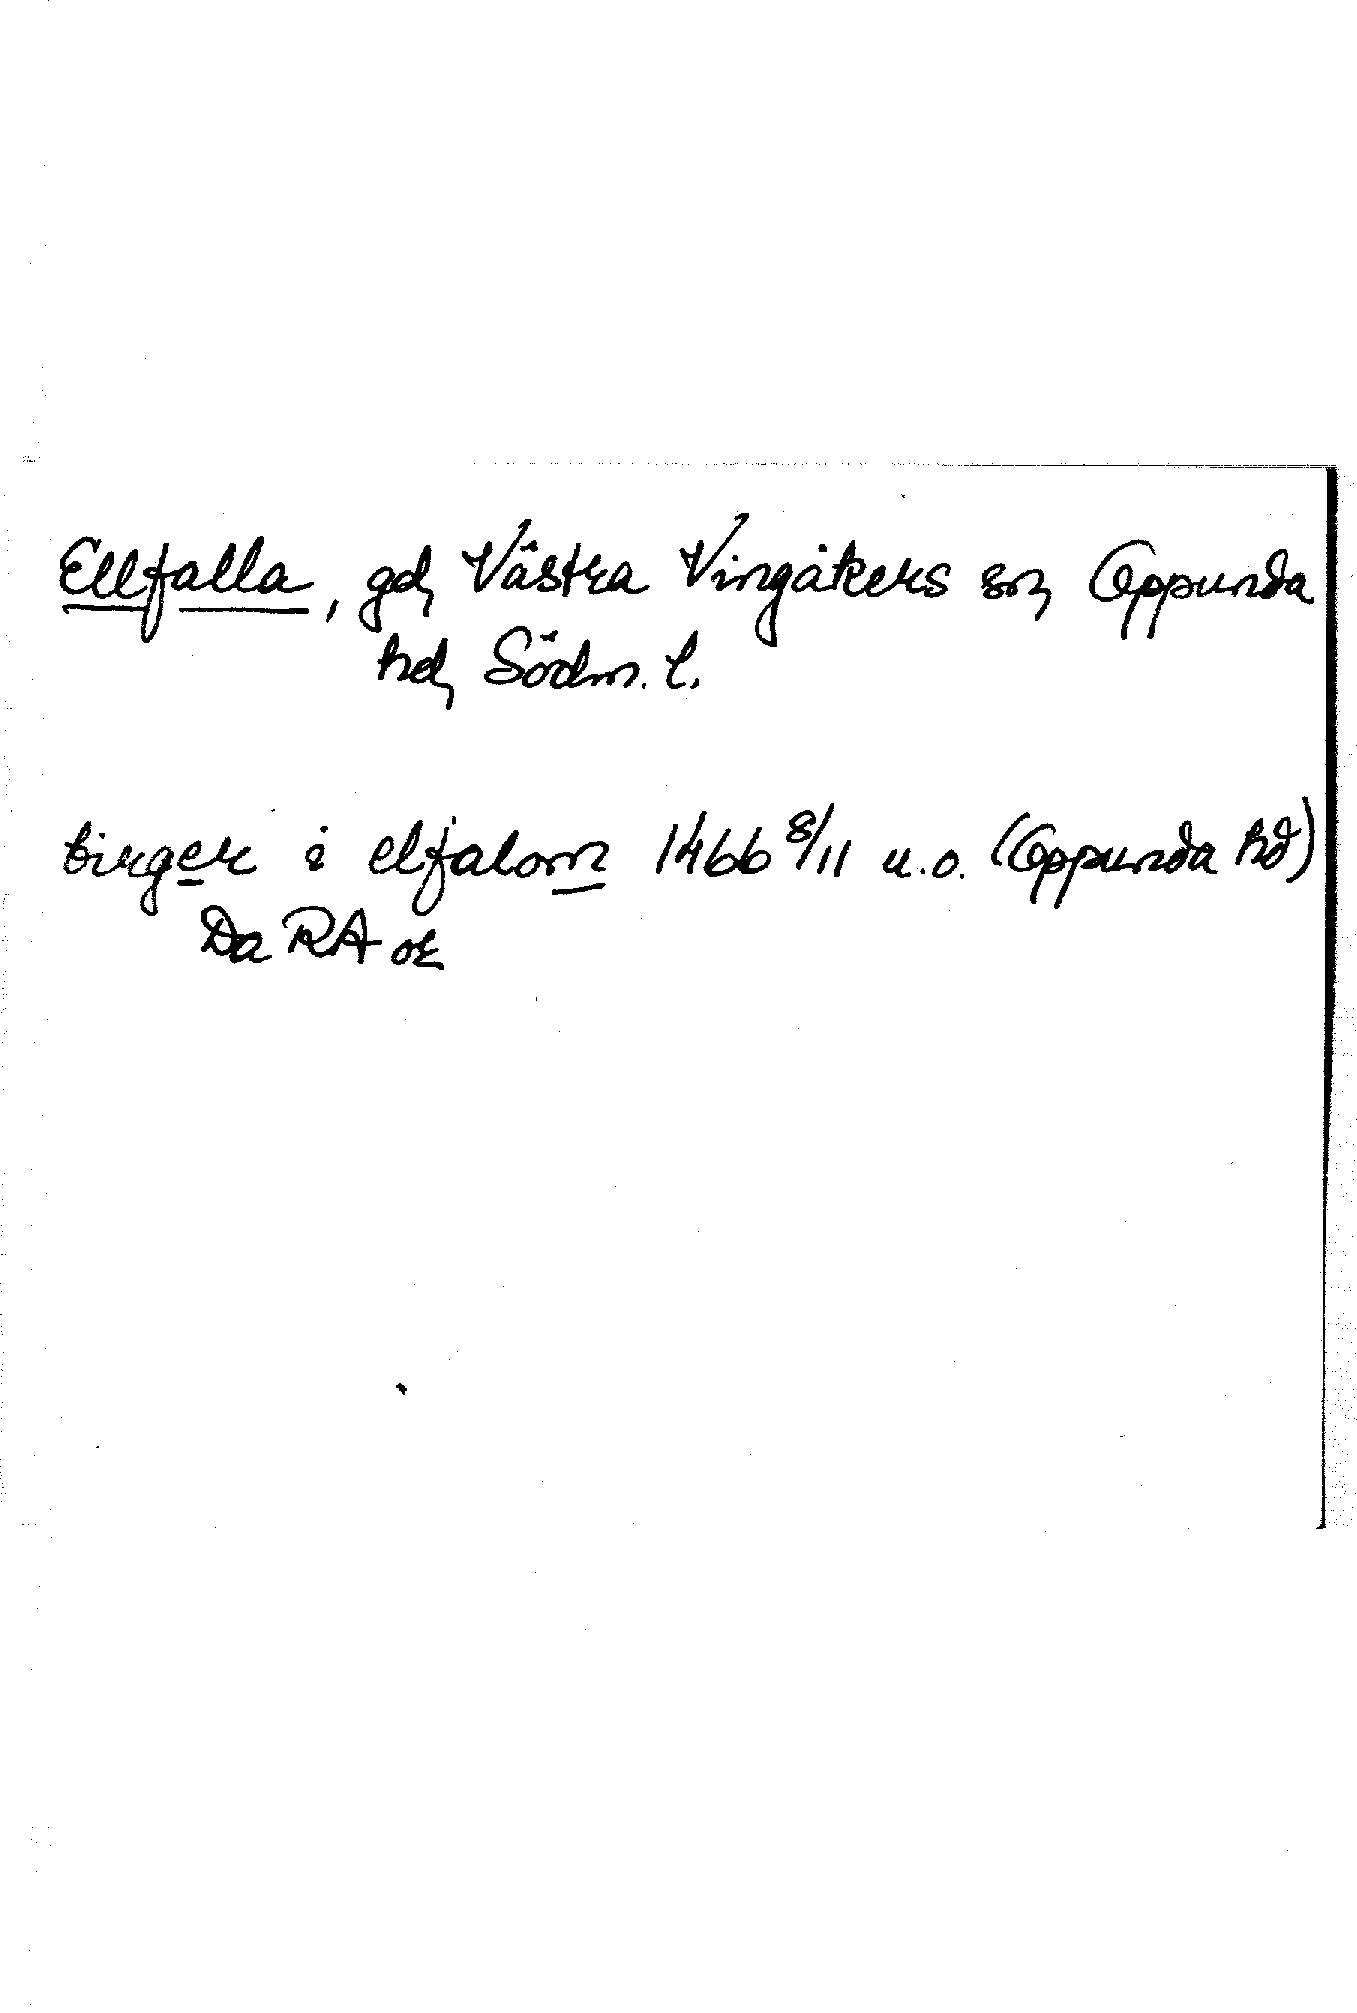 Ellfalla, gd, Västra Vingåkers sn, Oppunda
hd, Södm. l.
birger i elfalom 1466 8/11 u.o. (Oppunda hd)
Da RA or